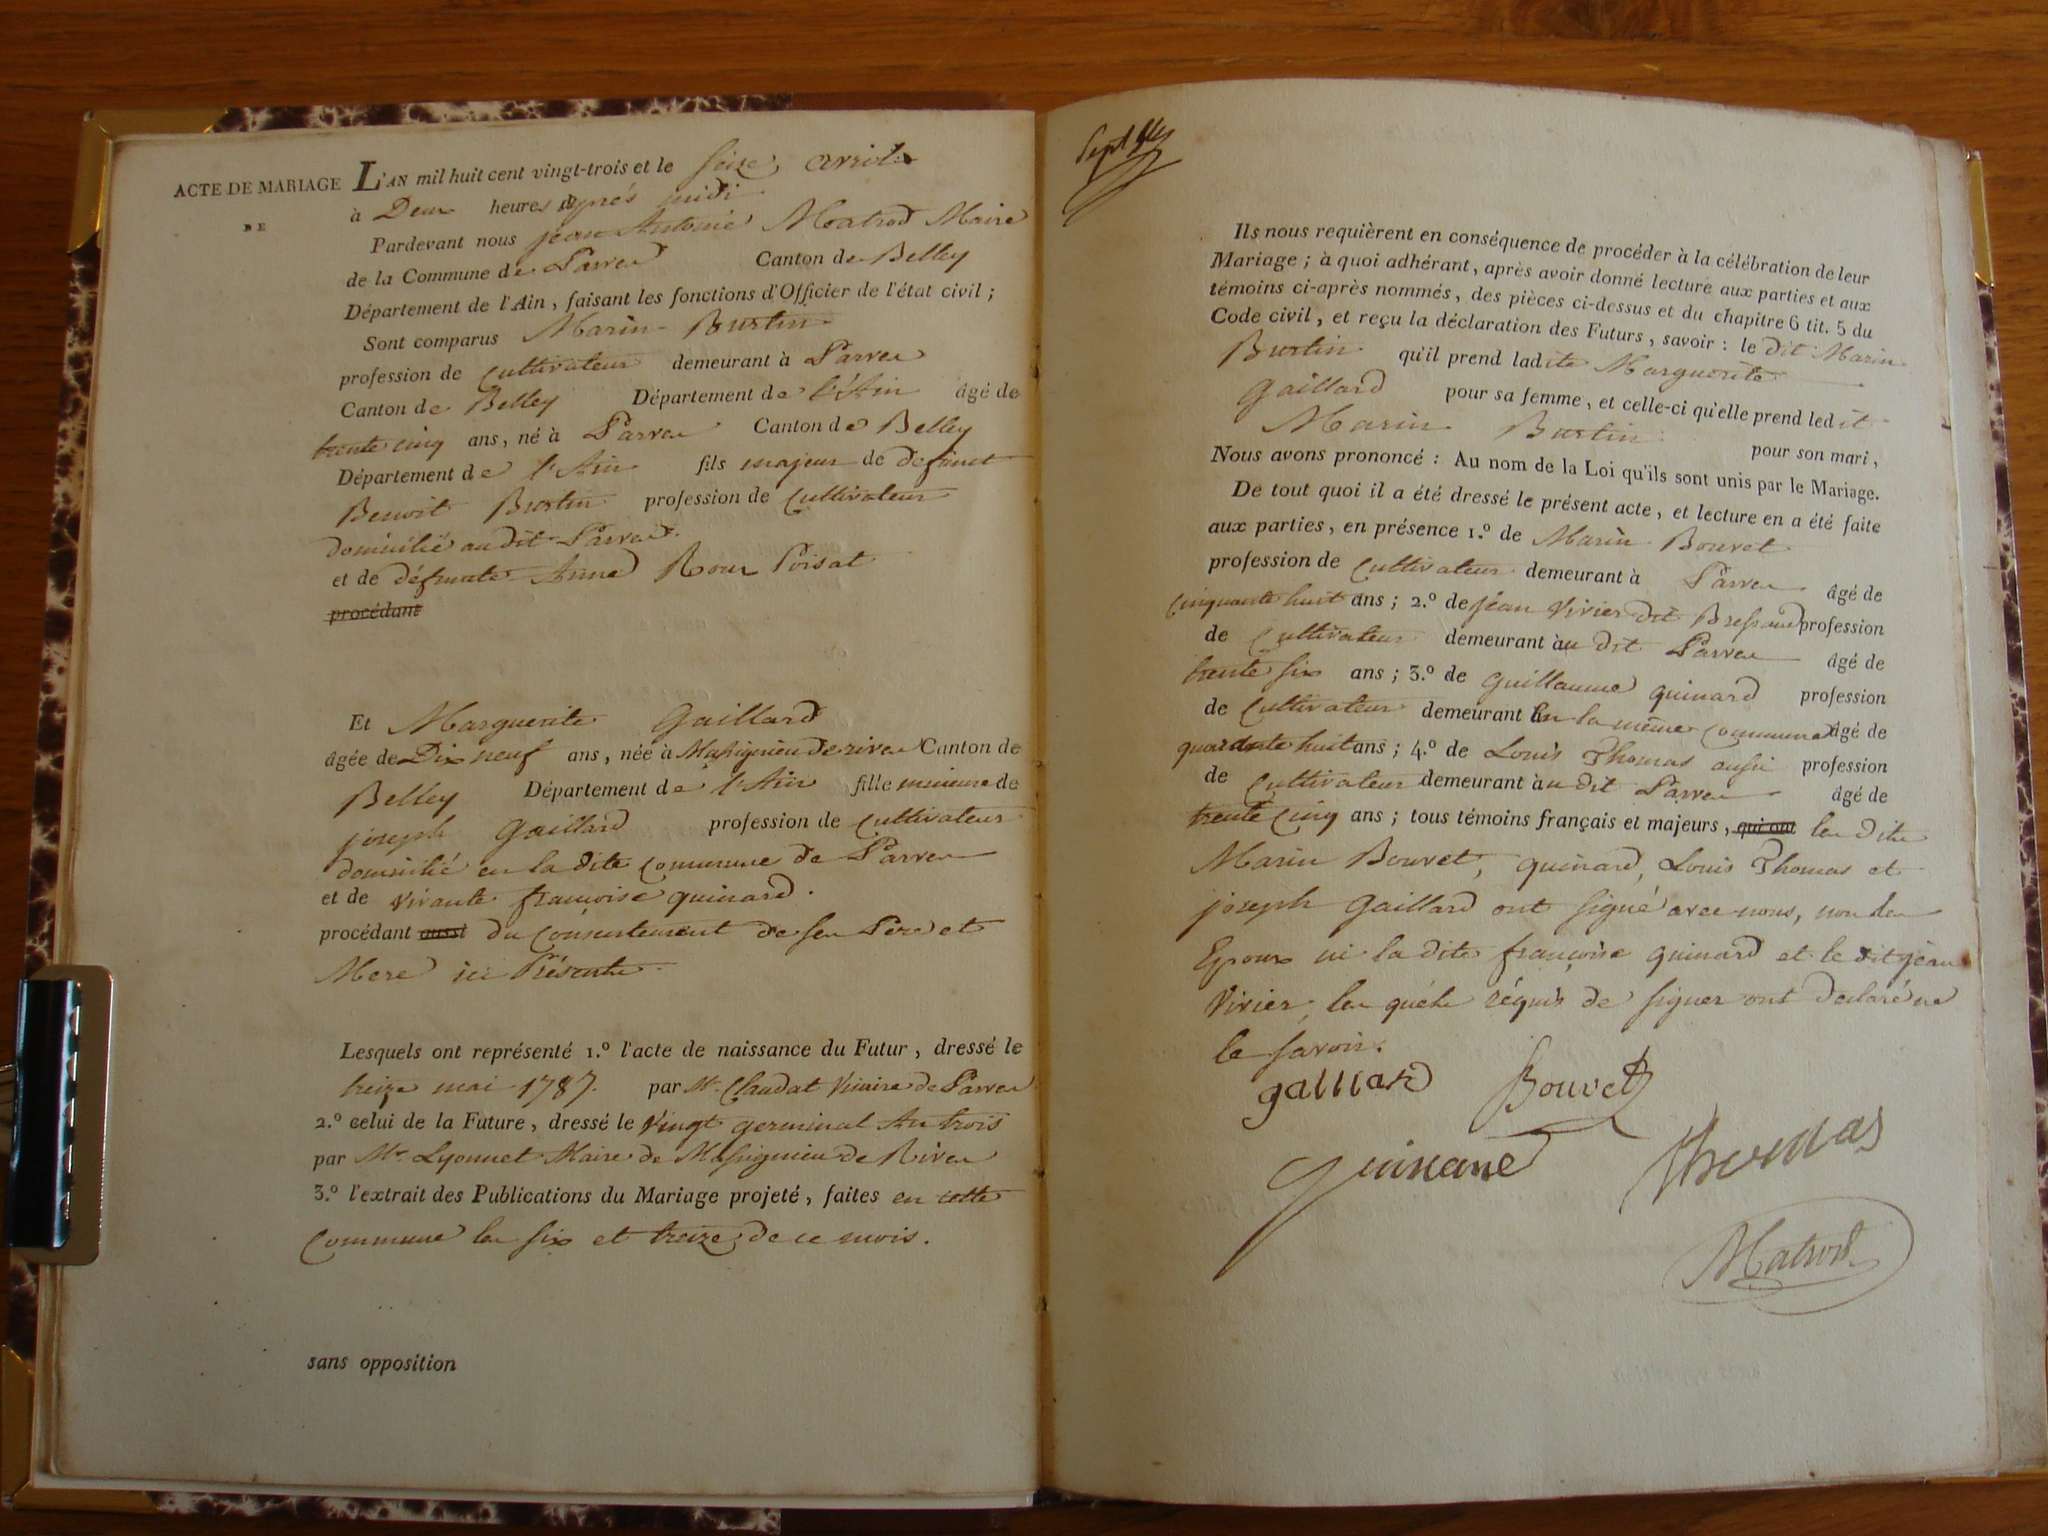 ACTE DE MARIAGE
DE
L'AN mil huit cent vingt-trois et le seize avril
à Deux heures après midi
Pardevant nous jean Antoine Matrod Maire
de la Commune de Parves Canton de Belley
Département de l'Ain, faisant les fonctions d'Officier de l'état civil ;
Sont comparus Marin Burtin
profession de cultivateur demeurant à Parves
Canton de Belley Département de l'Ain âgé de
trente cinq ans, né à Parves Canton de Belley
Département de l'Ain fils majeur de defunct
Benoit Burtin profession de Cultivateur
domicilié au dit Parves.
et de défunte Anne Roux Poisat
procédant
Et Marguerite Gaillard
âgée de Dix neuf ans, née à Massignieu de rives Canton de
Belley Département de l'Ain fille mineure de
joseph Gaillard profession de Cultivateur
domicilié en la dite commune de Parves
et de vivante françoise quinard.
procédant aussi du consentement de ses Pere et
Mere ici Présents
Lesquels ont représenté 1.º l'acte de naissance du Futur, dressé le
treize mai 1787. par Mr. Claudat Vicaire de Parves
2.º celui de la Future, dressé le Vingt germinal An trois
par Mr. Lyonnet Maire de Massignieu de Rives
3.º l'extrait des Publications du Mariage projeté, faites en cette
Commune les six et treize de ce mois.
sans opposition
Sept
Ils nous requièrent en conséquence de procéder à la célébration de leur
Mariage ; à quoi adhérant, après avoir donné lecture aux parties et aux
témoins ci-après nommés, des pièces ci-dessus et du chapitre 6 tit. 5 du
Code civil, et reçu la déclaration des Futurs, savoir : le dit Marin
Burtin qu'il prend ladite Marguerite
Gaillard pour sa femme, et celle-ci qu'elle prend ledit
Marin Burtin pour son mari,
Nous avons prononcé : Au nom de la Loi qu'ils sont unis par le Mariage.
De tout quoi il a été dressé le présent acte, et lecture en a été faite
aux parties, en présence 1.º de Marin Bouvet
profession de Cultivateur demeurant à Parves âgé de
cinquante huit ans ; 2.º de jean Vivier dit Bressand profession
de Cultivateur demeurant au dit Parves âgé de
trente six ans ; 3.º de Guillaume quinard profession
de Cultivateur demeurant En la même Commune âgé de
quarante huit ans ; 4.º de Louis Thomas aussi profession
de Cultivateur demeurant au dit Parves âgé de
trente Cinq ans ; tous témoins français et majeurs, qui ont les dits
Marin Bouvet, quinard, Louis Thomas et
joseph Gaillard ont signé avec nous, non les
Epoux ni la dite françoise quinard et le dit jean
Vivier, les quels réquis de signer ont declaré ne
le savoir.
gaillard Bouvet
quinard Thomas
Matrod